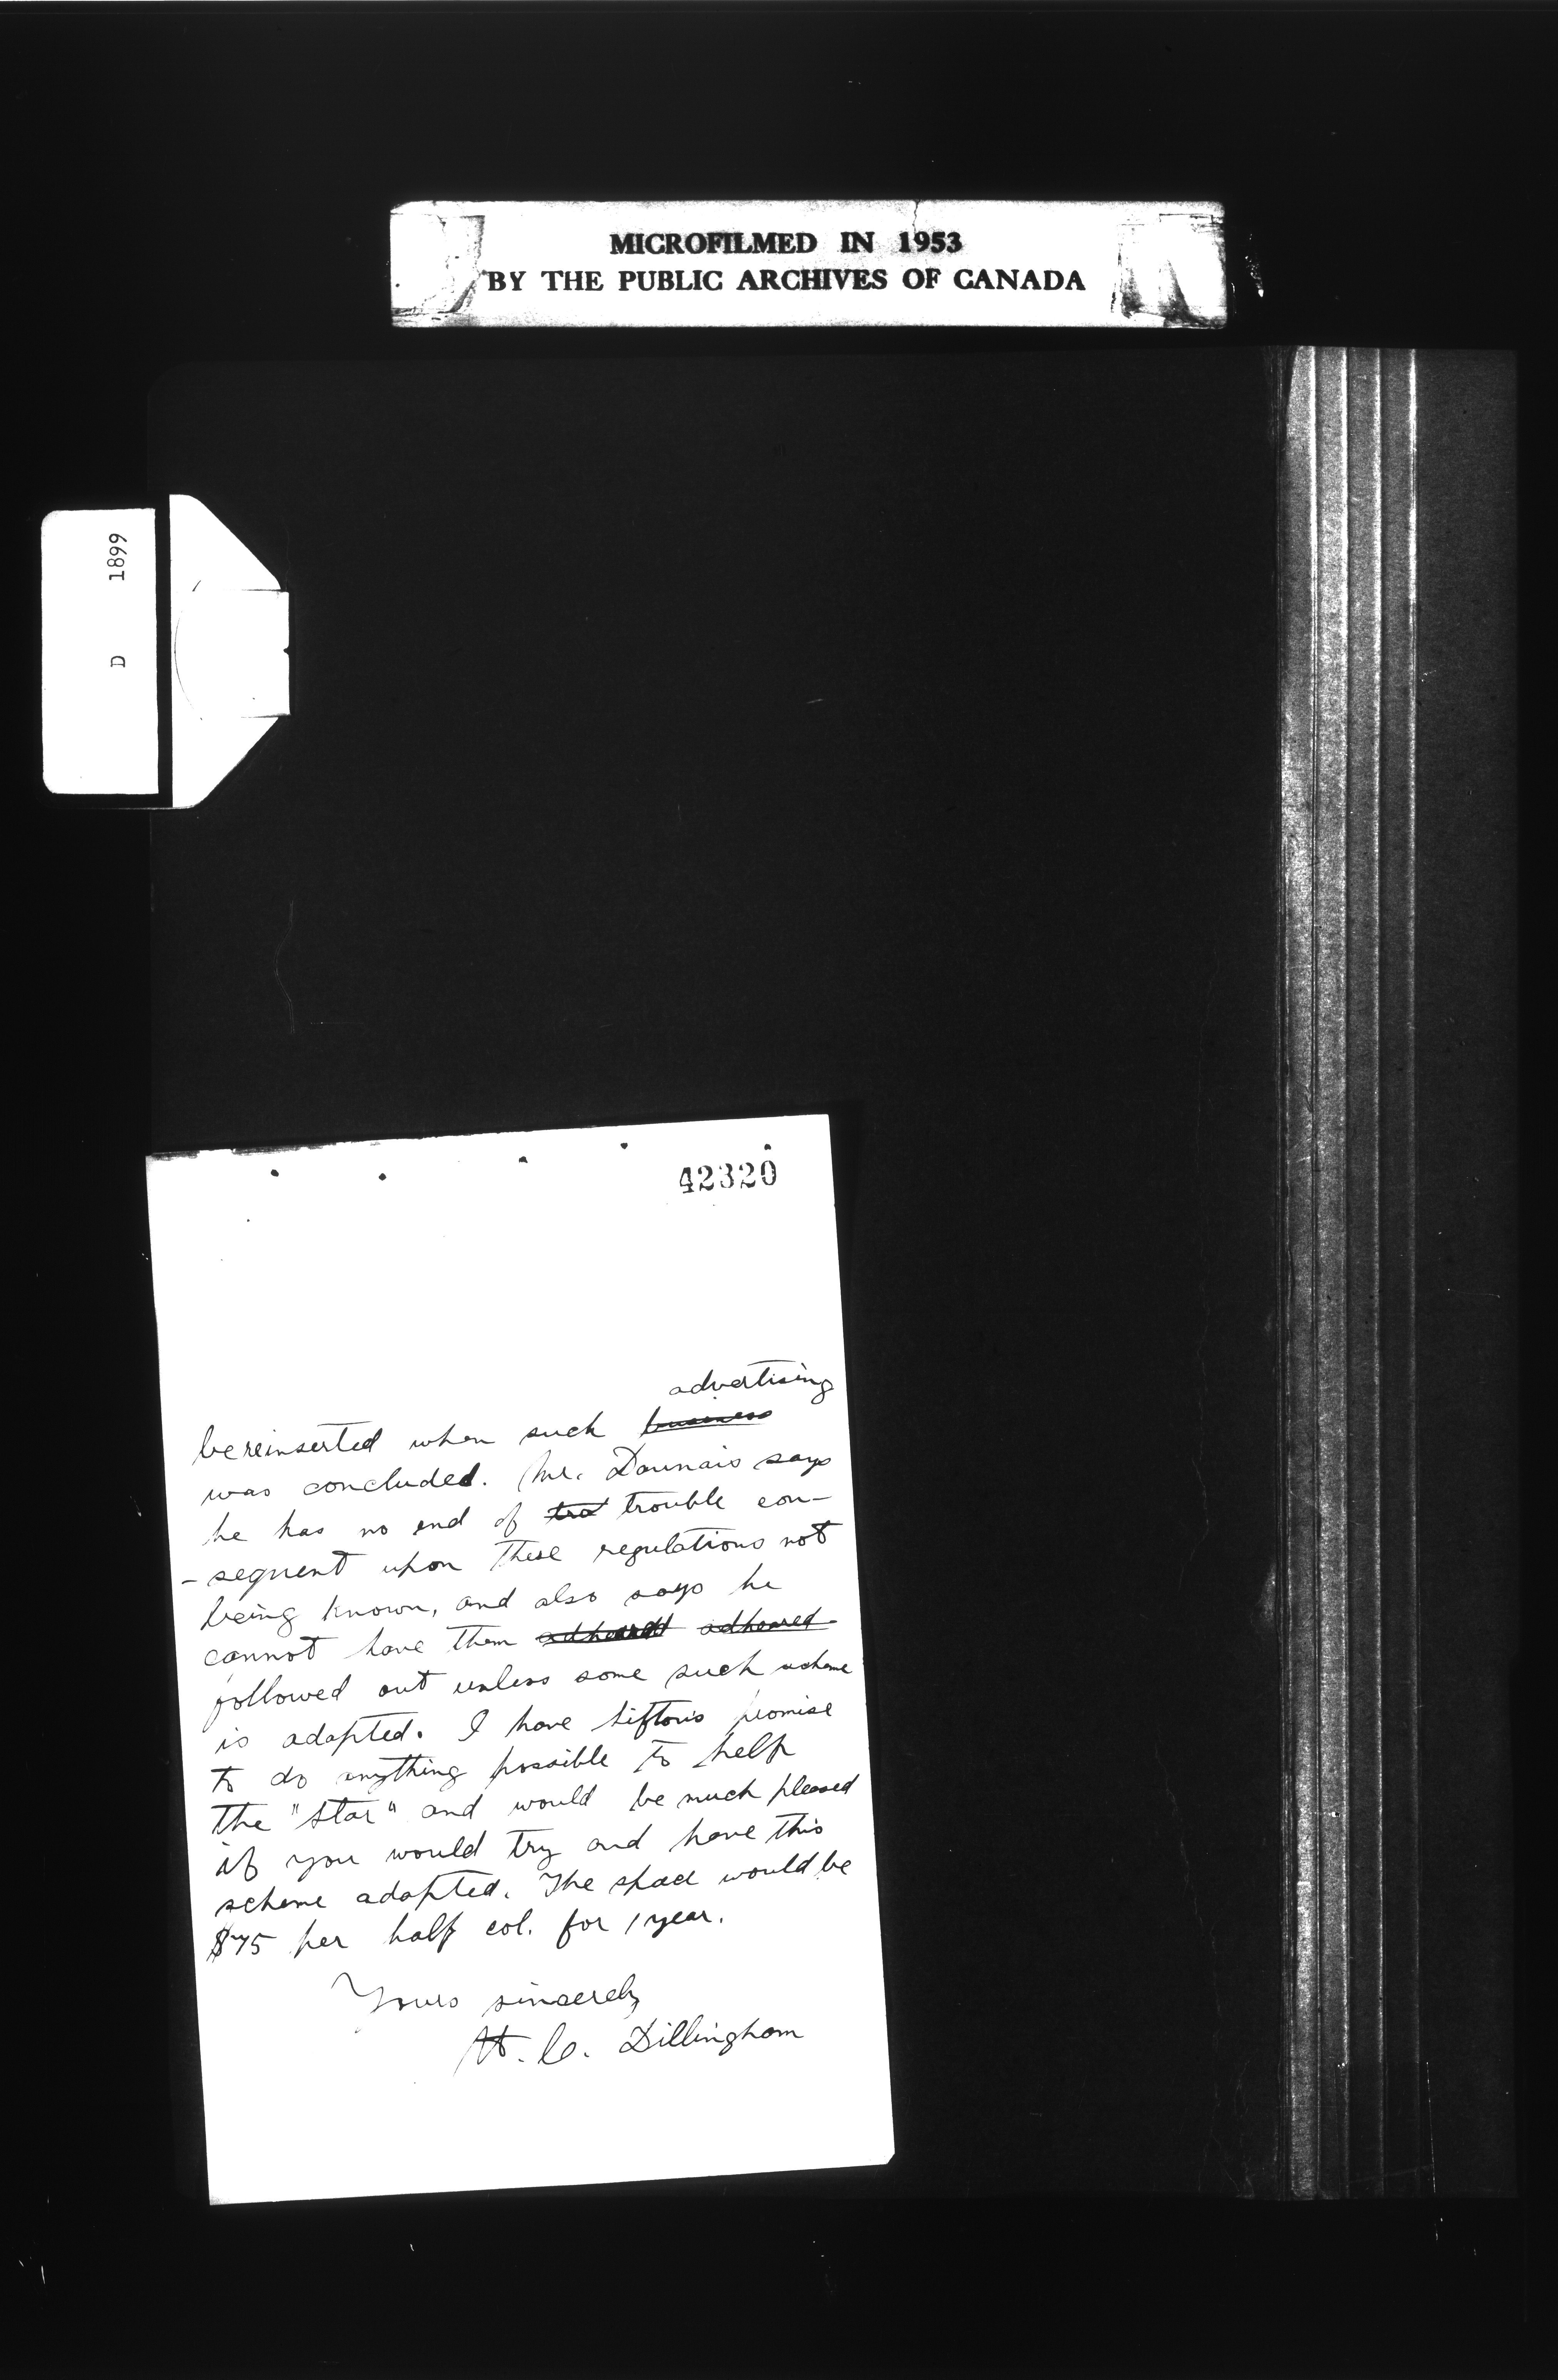 MICROFILMED IN 1953
BY THE PUBLIC ARCHIVES OF CANADA
D 1899
42320
advertising
be reinserted when such business
was concluded. Mr. Daunais says
he has no end of tro trouble con-
-sequent upon these regulations not
being known, and also says he
cannot have them adheared adheared
followed out unless some such scheme
is adopted. I have Sifton's promise
to do anything possible to help
the "Star" and would be much pleased
if you would try and have this
scheme adopted. The space would be
$75 per half col. for 1 year.
Yours sincerely
H. C. Dillingham